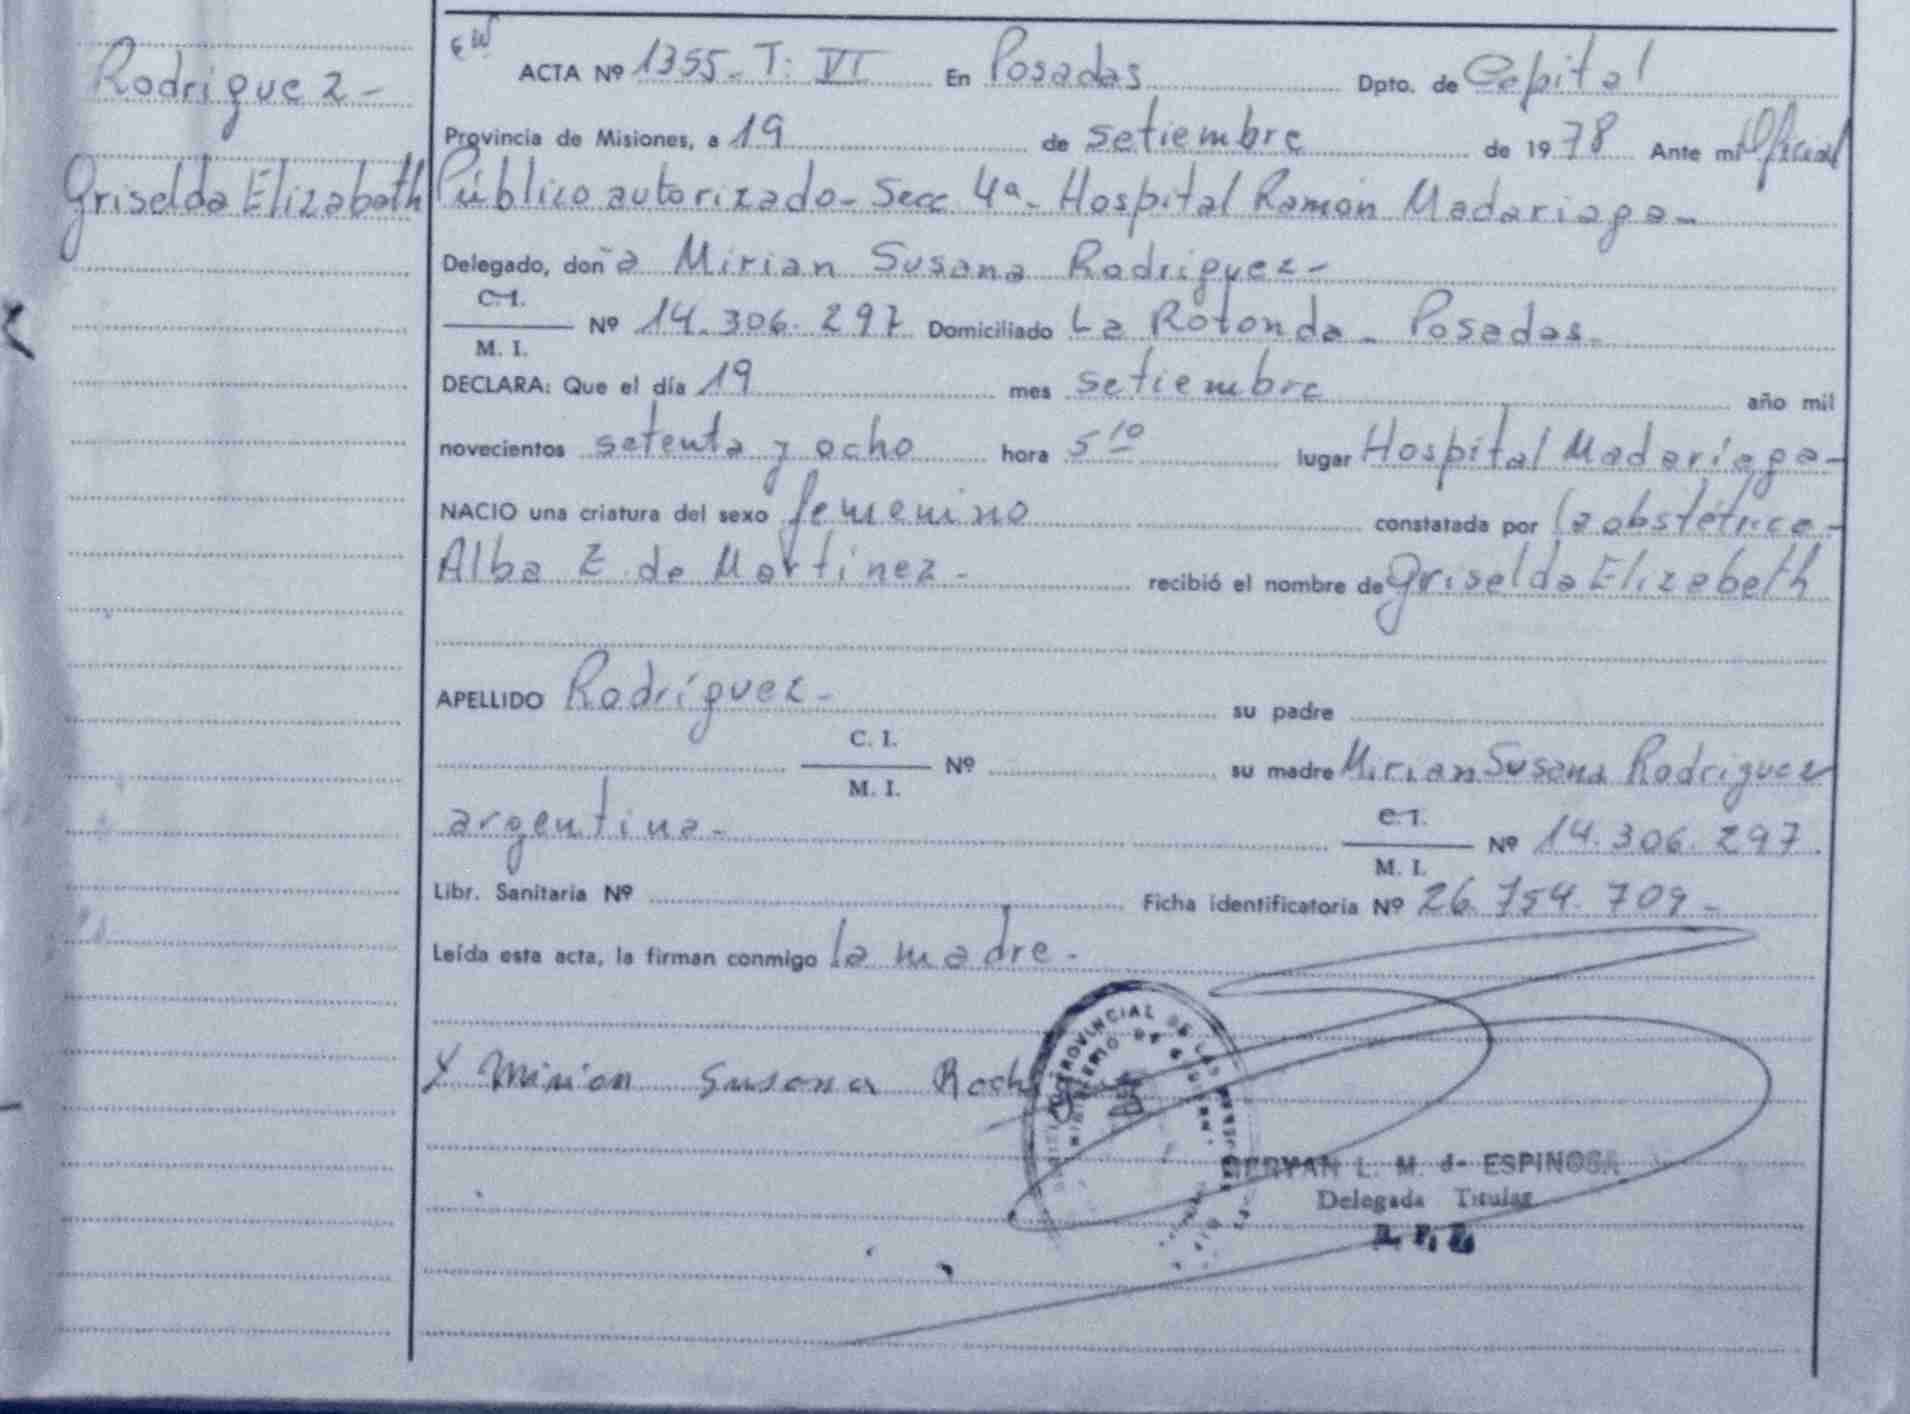 Rodriguez-
Griselda Elizabeth
ACTA Nº 1355- T. VI En Posadas Dpto. de Capital
Provincia de Misiones, a 19 de setiembre de 1978 Ante mi Oficial
Público autorizado- Secc 4ª- Hospital Ramón Madariaga-
Delegado, doña Mirian Susana Rodriguez-
C.I.
Nº 14.306.297 Domiciliado La Rotonda - Posadas-
M. I.
DECLARA: Que el día 19 mes setiembre año mil
novecientos setenta y ocho hora 5 10 lugar Hospital Madariaga-
NACIO una criatura del sexo femenino constatada por la obstétrica-
Alba E. de Martinez- recibió el nombre de Griselda Elizabeth
APELLIDO Rodríguez- su padre
C. I.
Nº su madre Mirian Susana Rodriguez
M. I.
argentina- C.I.
Nº 14.306.297
M. I.
Libr. Sanitaria Nº Ficha identificatoria Nº 26.754.709-
Leída esta acta, la firman conmigo la madre-
x Mirian Susana
PROVINCIAL DE LAS
L. M. de ESPINOSA
Delegada Titular